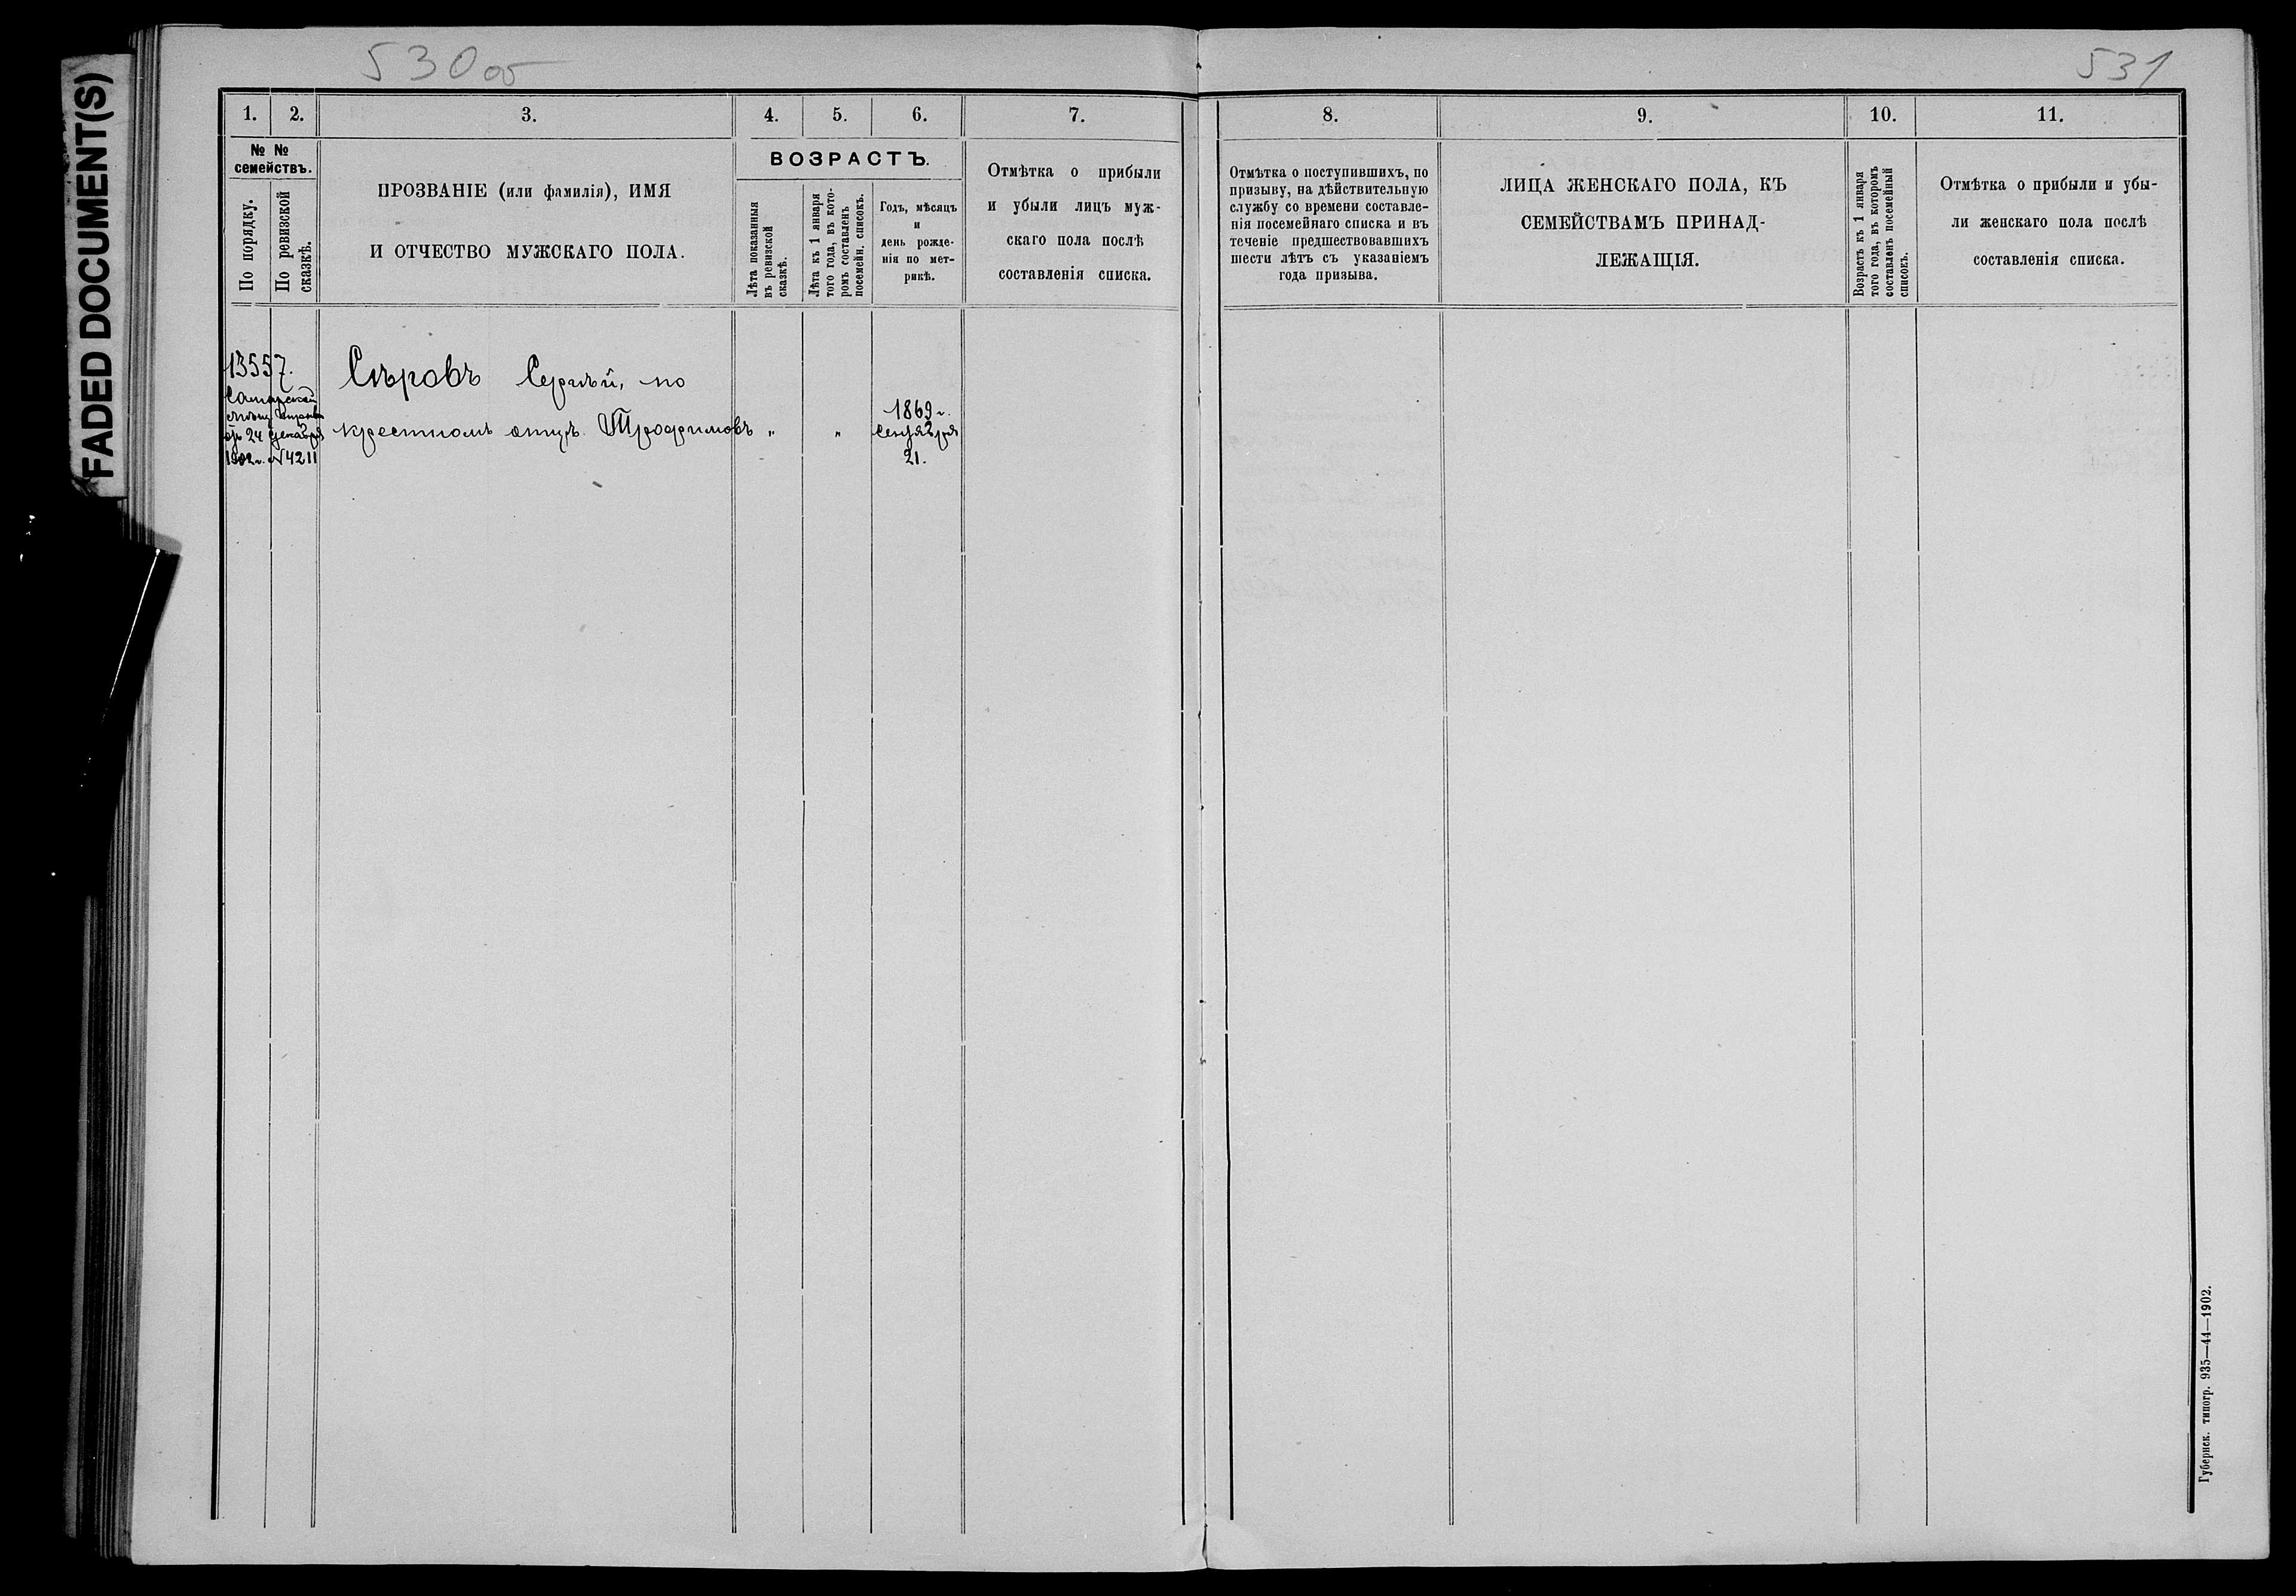 FADED DOCUMENT(S)
530 об
531
1. 2. 3. 4. 5. 6. 7. 8. 9. 10. 11.
№ №
семействъ.
По порядку.
По ревизской
сказкѣ.
ПРОЗВАНІЕ (или фамилія), ИМЯ
И ОТЧЕСТВО МУЖСКАГО ПОЛА.
ВОЗРАСТЪ.
Лѣта показанныя
въ ревизской
сказкѣ.
Лѣта къ 1 января
того года, въ кото-
ромъ составленъ
посемейн. списокъ.
Годъ, мѣсяцъ
и
день рожде-
нія по мет-
рикѣ.
Отмѣтка о прибыли
и убыли лицъ муж-
скаго пола послѣ
составленія списка.
Отмѣтка о поступившихъ, по
призыву, на дѣйствительную
службу со времени составле-
нія посемейнаго списка и въ
теченіе предшествовавшихъ
шести лѣтъ съ указаніемъ
года призыва.
ЛИЦА ЖЕНСКАГО ПОЛА, КЪ
СЕМЕЙСТВАМЪ ПРИНАД-
ЛЕЖАЩІЯ.
Возрастъ къ 1 января
того года, въ которомъ
составленъ посемейный
списокъ.
Отмѣтка о прибыли и убы-
ли женскаго пола послѣ
составленія списка.
13557.
Самарской
24 декабря
1902 г. №4211
Сѣровъ Сергѣй, по
крестномъ отцѣ Трофимовъ " "
1869 г.
Сентября
21.
Губернск. типогр. 935—44—1902.